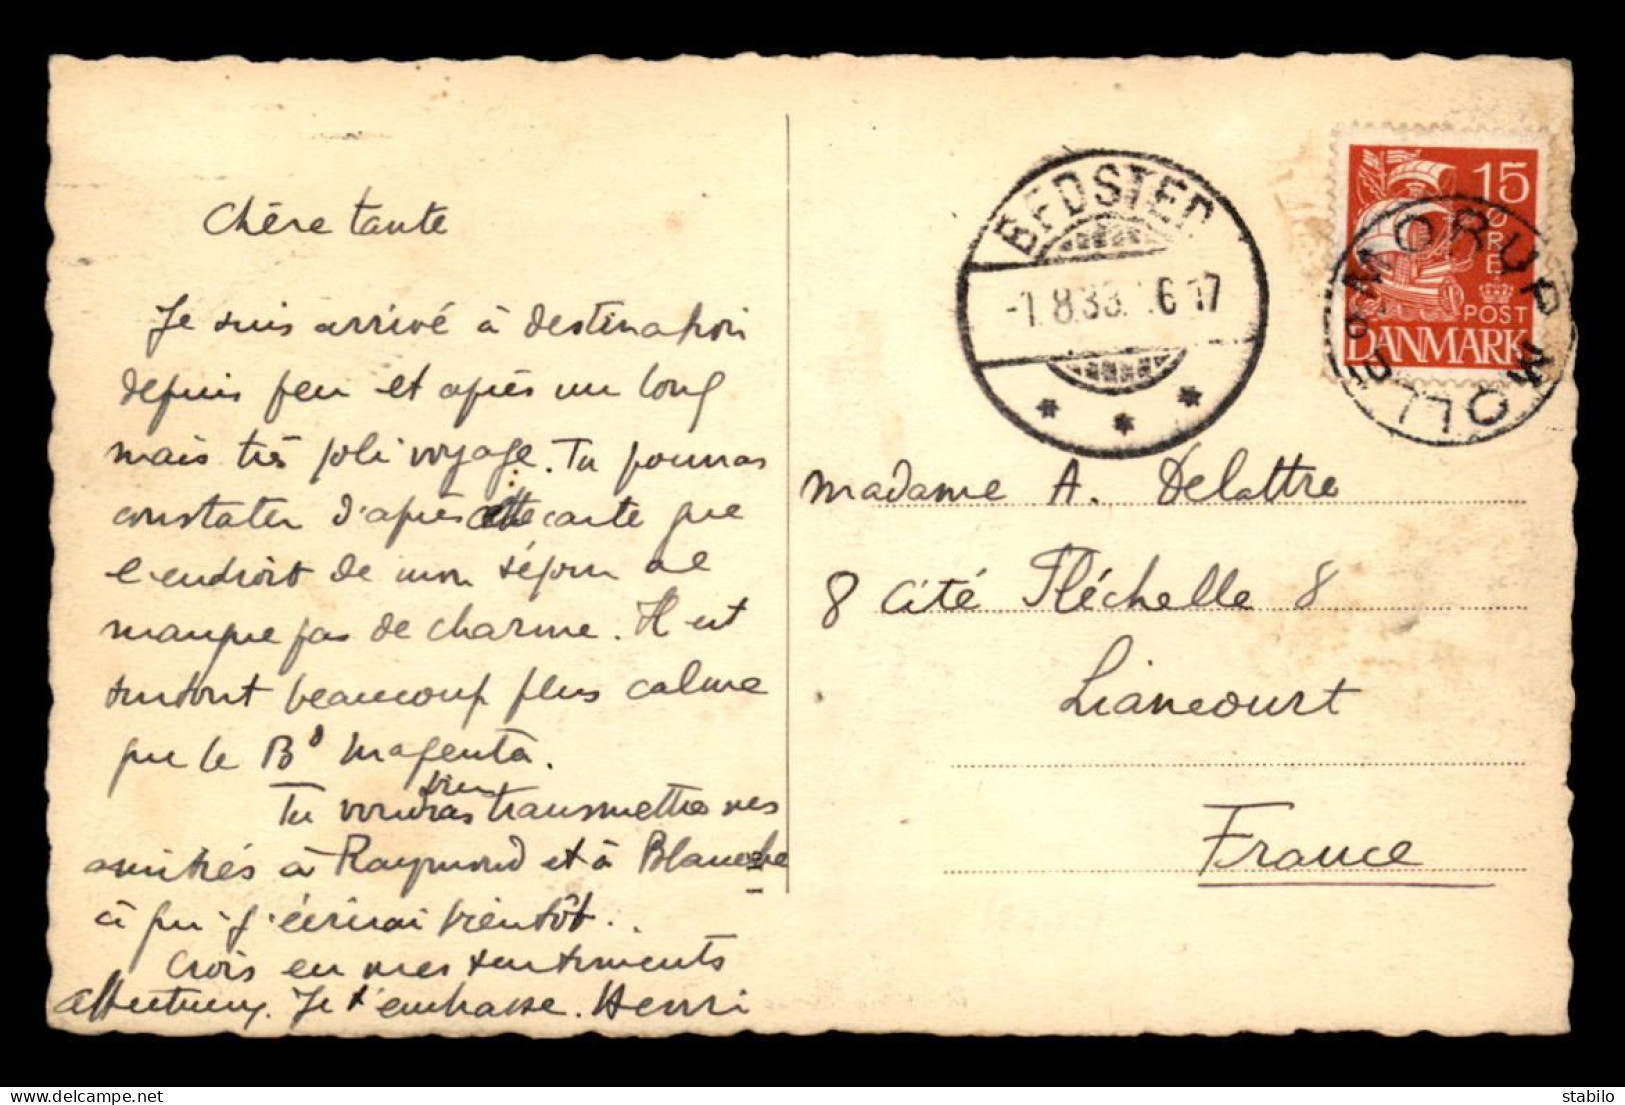 Chère tante
Je suis arrivé à destination
depuis peu et après un long
mais très joli voyage. Tu pourras
constater d'après cette carte que
l'endroit de mon séjour ne
manque pas de charme. Il est
surtout beaucoup plus calme
que le Bd Magenta.
Tu voudras bien transmettre mes
amitiés à Raymond et à Blanche
à qui j'écrirai bientôt.
Crois en mes sentiments
affectueux. Je t'embrasse. Henri
BEDSTED
-1.8.33. 16 17
15
ØRE
POST
DANMARK
MORUP MØLLE
Madame A. Delattre
8 Cité Fléchelle 8
Liancourt
France
delcampe.net
stabilo